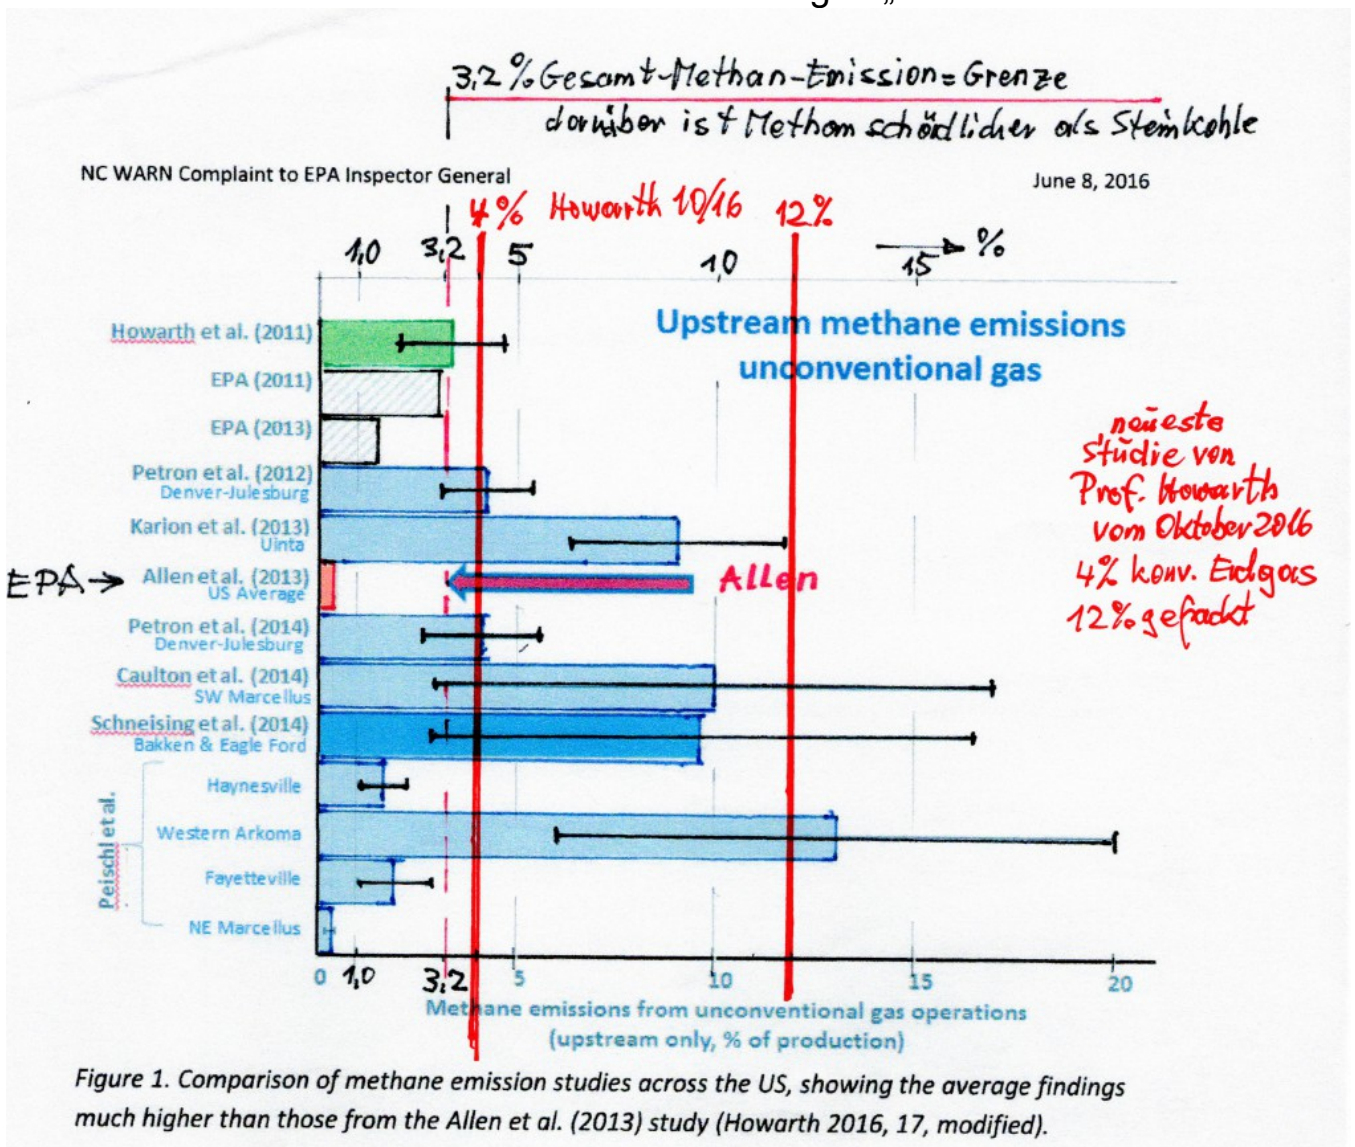 3,2 % Gesamt-Methan-Emission = Grenze
darüber ist Methan schädlicher als Steinkohle
NC WARN Complaint to EPA Inspector General
June 8, 2016
4% Howarth 10/16 12%
1,0 3,2 5 10 15 %
Upstream methane emissions
unconventional gas
Howarth et al. (2011)
EPA (2011)
EPA (2013)
Petron et al. (2012)
Denver-Julesburg
Karion et al. (2013)
Uinta
EPA
Allen et al. (2013)
US Average
Allen
Petron et al. (2014)
Denver-Julesburg
Caulton et al. (2014)
SW Marcellus
Schneising et al. (2014)
Bakken & Eagle Ford
Peischl et al.
Haynesville
Western Arkoma
Fayetteville
NE Marcellus
neueste
Studie von
Prof. Howarth
vom Oktober 2016
4% konv. Erdgas
12% gefrackt
0 1,0 3,2 5 10 15 20
Methane emissions from unconventional gas operations
(upstream only, % of production)
Figure 1. Comparison of methane emission studies across the US, showing the average findings
much higher than those from the Allen et al. (2013) study (Howarth 2016, 17, modified).